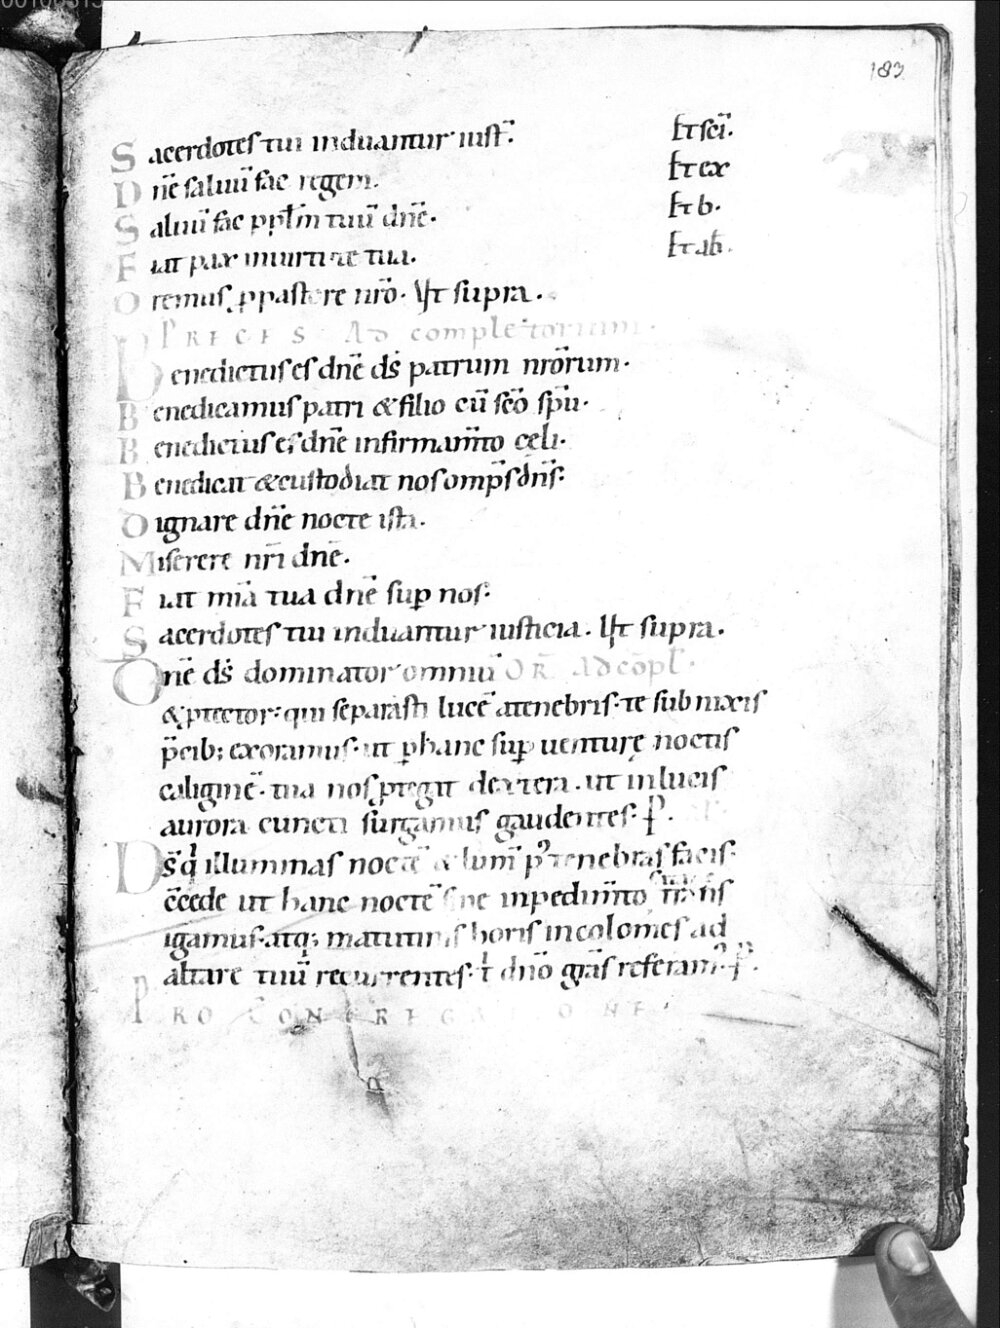 183
Sacerdotes tui induantur iust̄. Et sc̄i.
Dn̄e saluū fac regem. Et ex
Saluū fac pp̄lm tuū dn̄e. Et b.
Fiat pax in uirtute tua. Et ab̄.
Oremus ꝓ pastore nr̄o. Ut supra.
PRECES AD completorium.
Benedictus es dn̄e ds̄ patrum nr̄orum.
Benedicamus patri & filio cū sc̄o sp̄u.
Benedictus es dn̄e in firmam̄to cęli.
Benedicat & custodiat nos omp̄s dn̄s.
Dignare dn̄e nocte ista.
Miserere nr̄i dn̄e.
Fiat mīa tua dn̄e suꝑ nos.
Sacerdotes tui induantur iusticia. Ut supra.
Dn̄e ds̄ dominator omniū OR̄ Ad cōpl̄.
& ꝓtector. qui separasti lucē a tenebris. te subnixis
p̄cib; exoramus. ut ꝑ hanc suꝑuenturę noctis
caliginē. tua nos ꝓtegat dextera. ut in lucis
aurora cuncti surgamus gaudentes. ꝑ.
Ds̄ q̍ illuminas noctē & lum̄ p̍ tenebras facis.
c̄cede ut hanc noctē sine inpedim̄to
igamus. atq; matutinis horis incolomes ad
altare tuū recurrentes. t̍ dn̄o gr̄as referam̍. ꝑ.
PRO CONGREGATIONE.